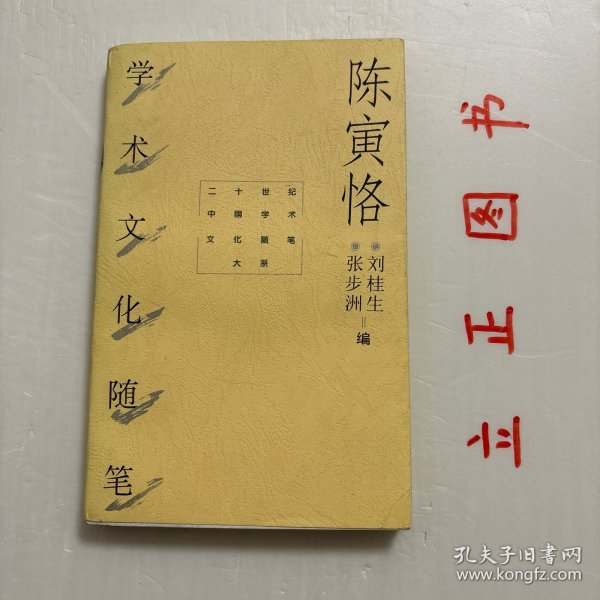 陈寅恪
学术文化随笔
二十世纪
中国学术
文化随笔
大系
刘桂生
张步洲
编
立正图书
孔夫子旧书网
www.kongfz.com